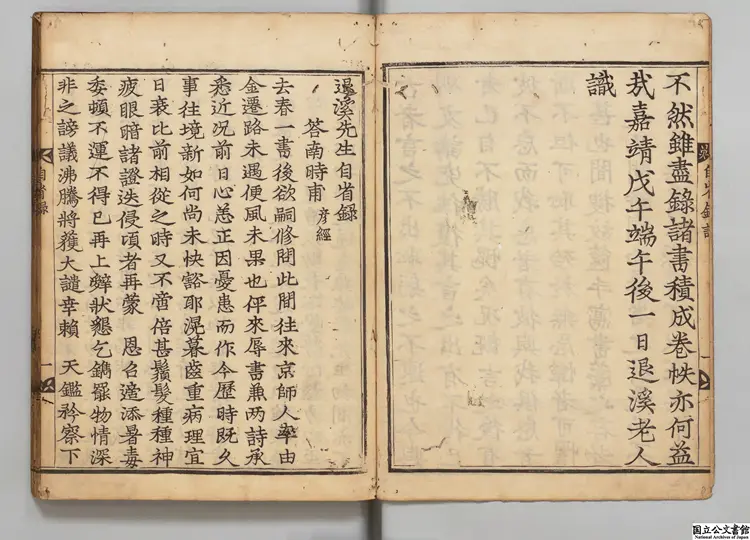 不然雖盡錄諸書積成卷帙亦何益
㢤嘉靖戊午端午後一日退溪老人
識
自省錄
一
退溪先生自省錄
答南時甫彦經
去春一書後欲嗣修問此間往來京師人率由
金遷路未遇便風未果也伻來辱書兼兩詩承
悉近况前日心恙正因憂患而作今歷時既久
事往境新如何尚未快豁耶滉暮齒重病理宜
日衰比前相從之時又不啻倍甚鬚髮種種神
疲眼暗諸證迭侵頃者再蒙 恩召適添暑毒
委頓不運不得已再上辭狀懇乞鐫罷物情深
非之謗議沸騰將獲大譴幸賴 天鑑矜察下
自省錄
一
国立公文書館
National Archives of Japan